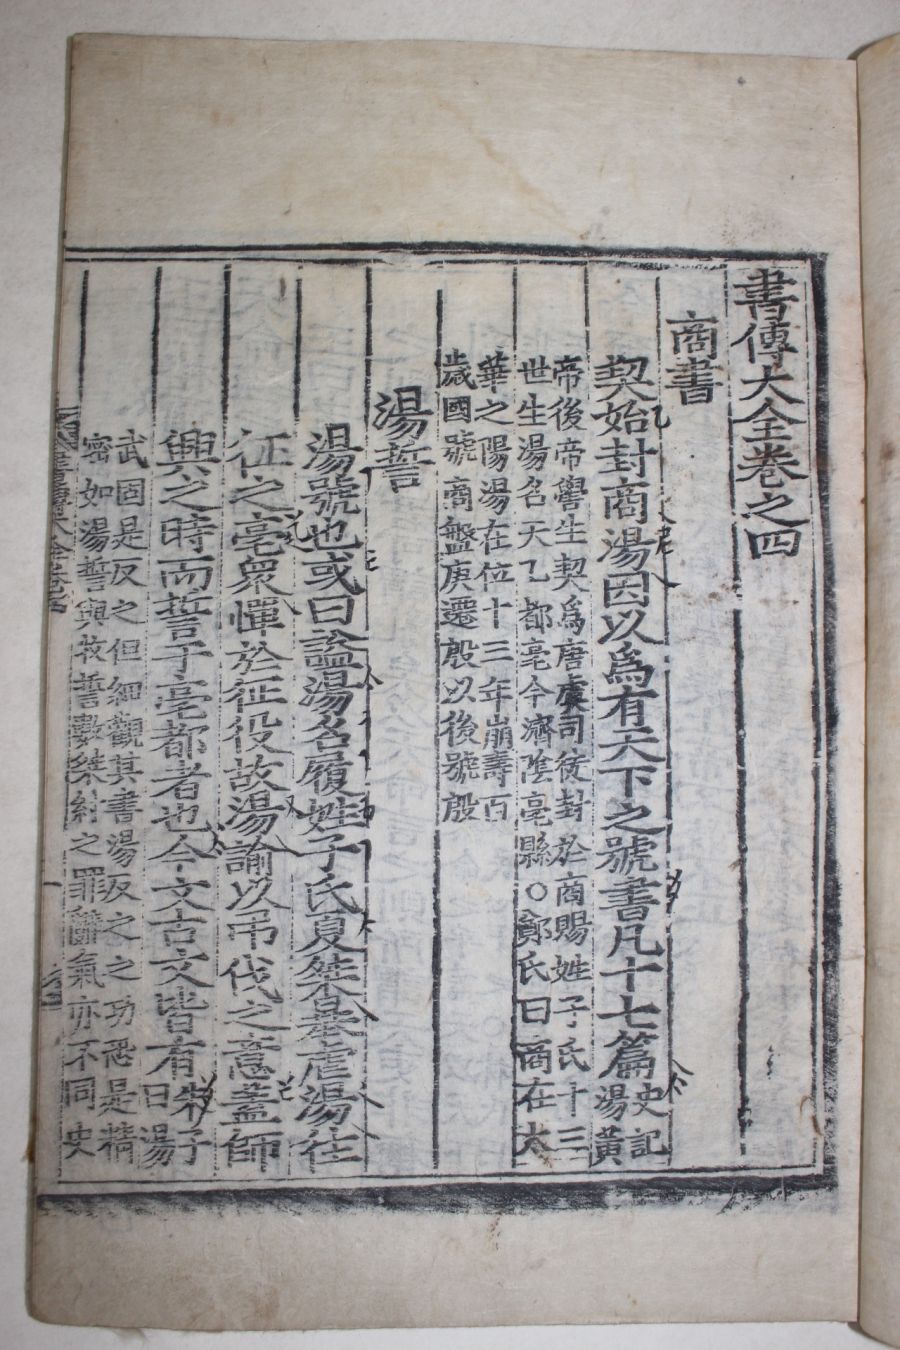 書傳大全卷之四
商書
契始封商湯因以爲有天下之號書凡十七篇
史記
湯黃
帝後帝嚳生契爲唐虞司徒封於商賜姓子氏十三
世生湯名天乙都亳今濟陰亳縣○鄭氏曰商在太
華之陽湯在位十三年崩壽百
歲國號商盤庚遷殷以後號殷
湯誓
湯號也或曰諡湯名履姓子氏夏桀暴虐湯往
征之亳衆憚於征役故湯諭以弔伐之意蓋師
興之時而誓于亳都者也今文古文皆有
朱子
曰湯
武固是反之但細觀其書湯反之之功恐是精
密如湯誓與牧誓數桀紂之罪辭氣亦不同史